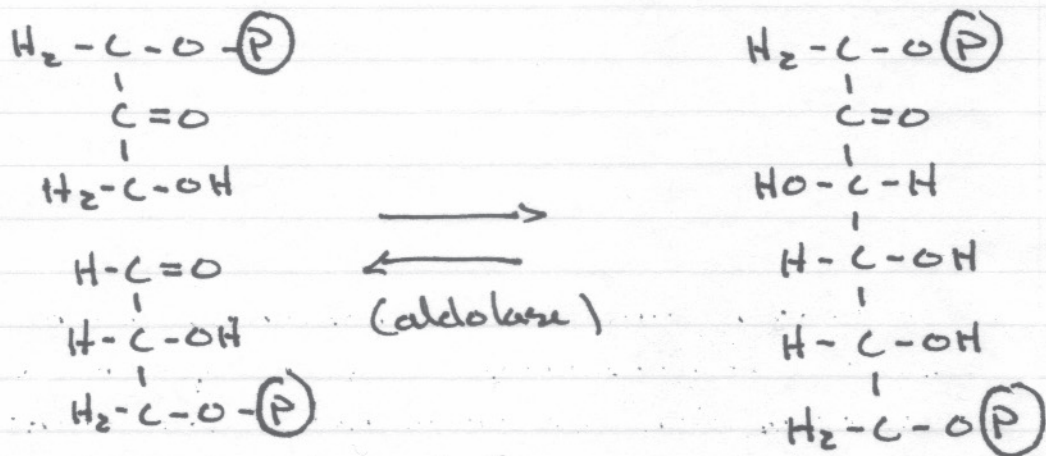 H₂-C-O-Ⓟ
C=O
H₂-C-OH
H-C=O
H-C-OH
H₂-C-O-Ⓟ
(aldolase)
H₂-C-OⓅ
C=O
HO-C-H
H-C-OH
H-C-OH
H₂-C-OⓅ